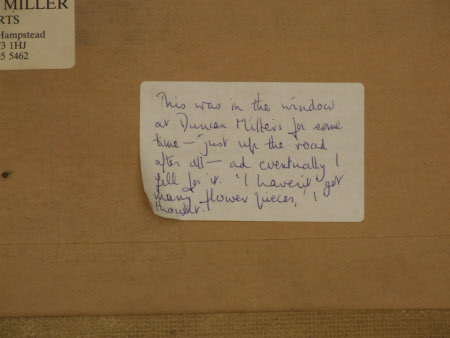 MILLER
RTS
Hampstead
3 1HJ
5 5462
This was in the window
at Duncan Miller's for some
time — just up the road
after all — ad eventually I
fell for it. 'I haven't got
many flower pieces,' I
thought.